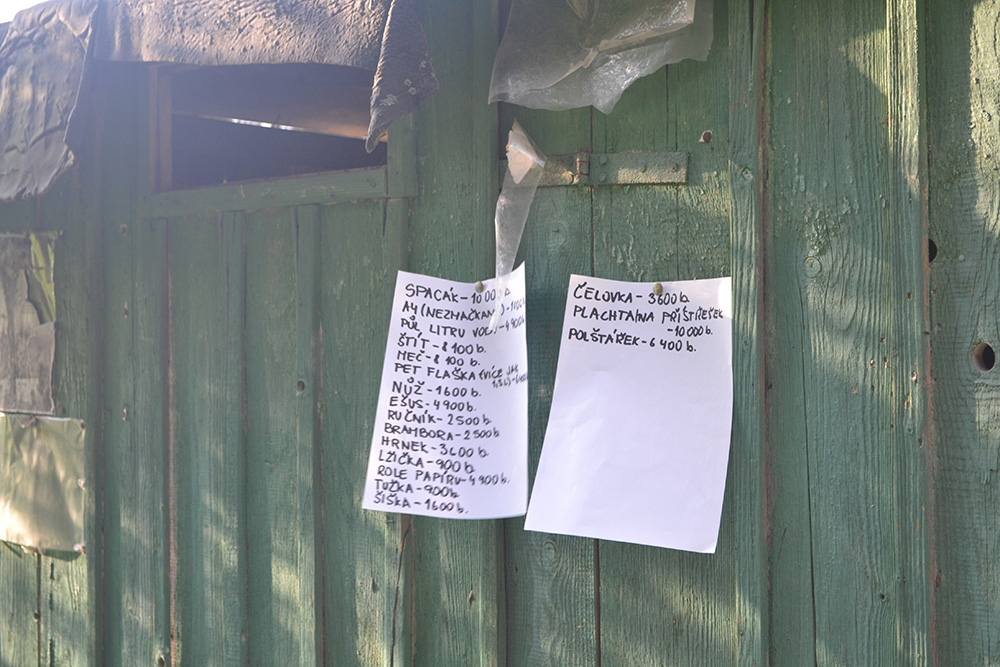 SPACÁK-10000b.
A4(NEZMAČKAN
PŮL LITRU VODY-4900
ŠTÍT-8100b.
MEČ-8100b.
PET FLAŠKA (VÍCE JAK
NŮŽ-1600b.
EŠUS-4900b.
RUČNÍK-2500b.
BRAMBORA-2500b
HRNEK-3600b.
LŽIČKA-900b.
ROLE PAPÍRU-4900b.
TUŽKA-900b.
ŠIŠKA-1600b.
ČELOVKA-3600b.
PLACHTA(NA PŘÍSTŘEŠEK
-10000b.
POLŠTÁŘEK-6400b.